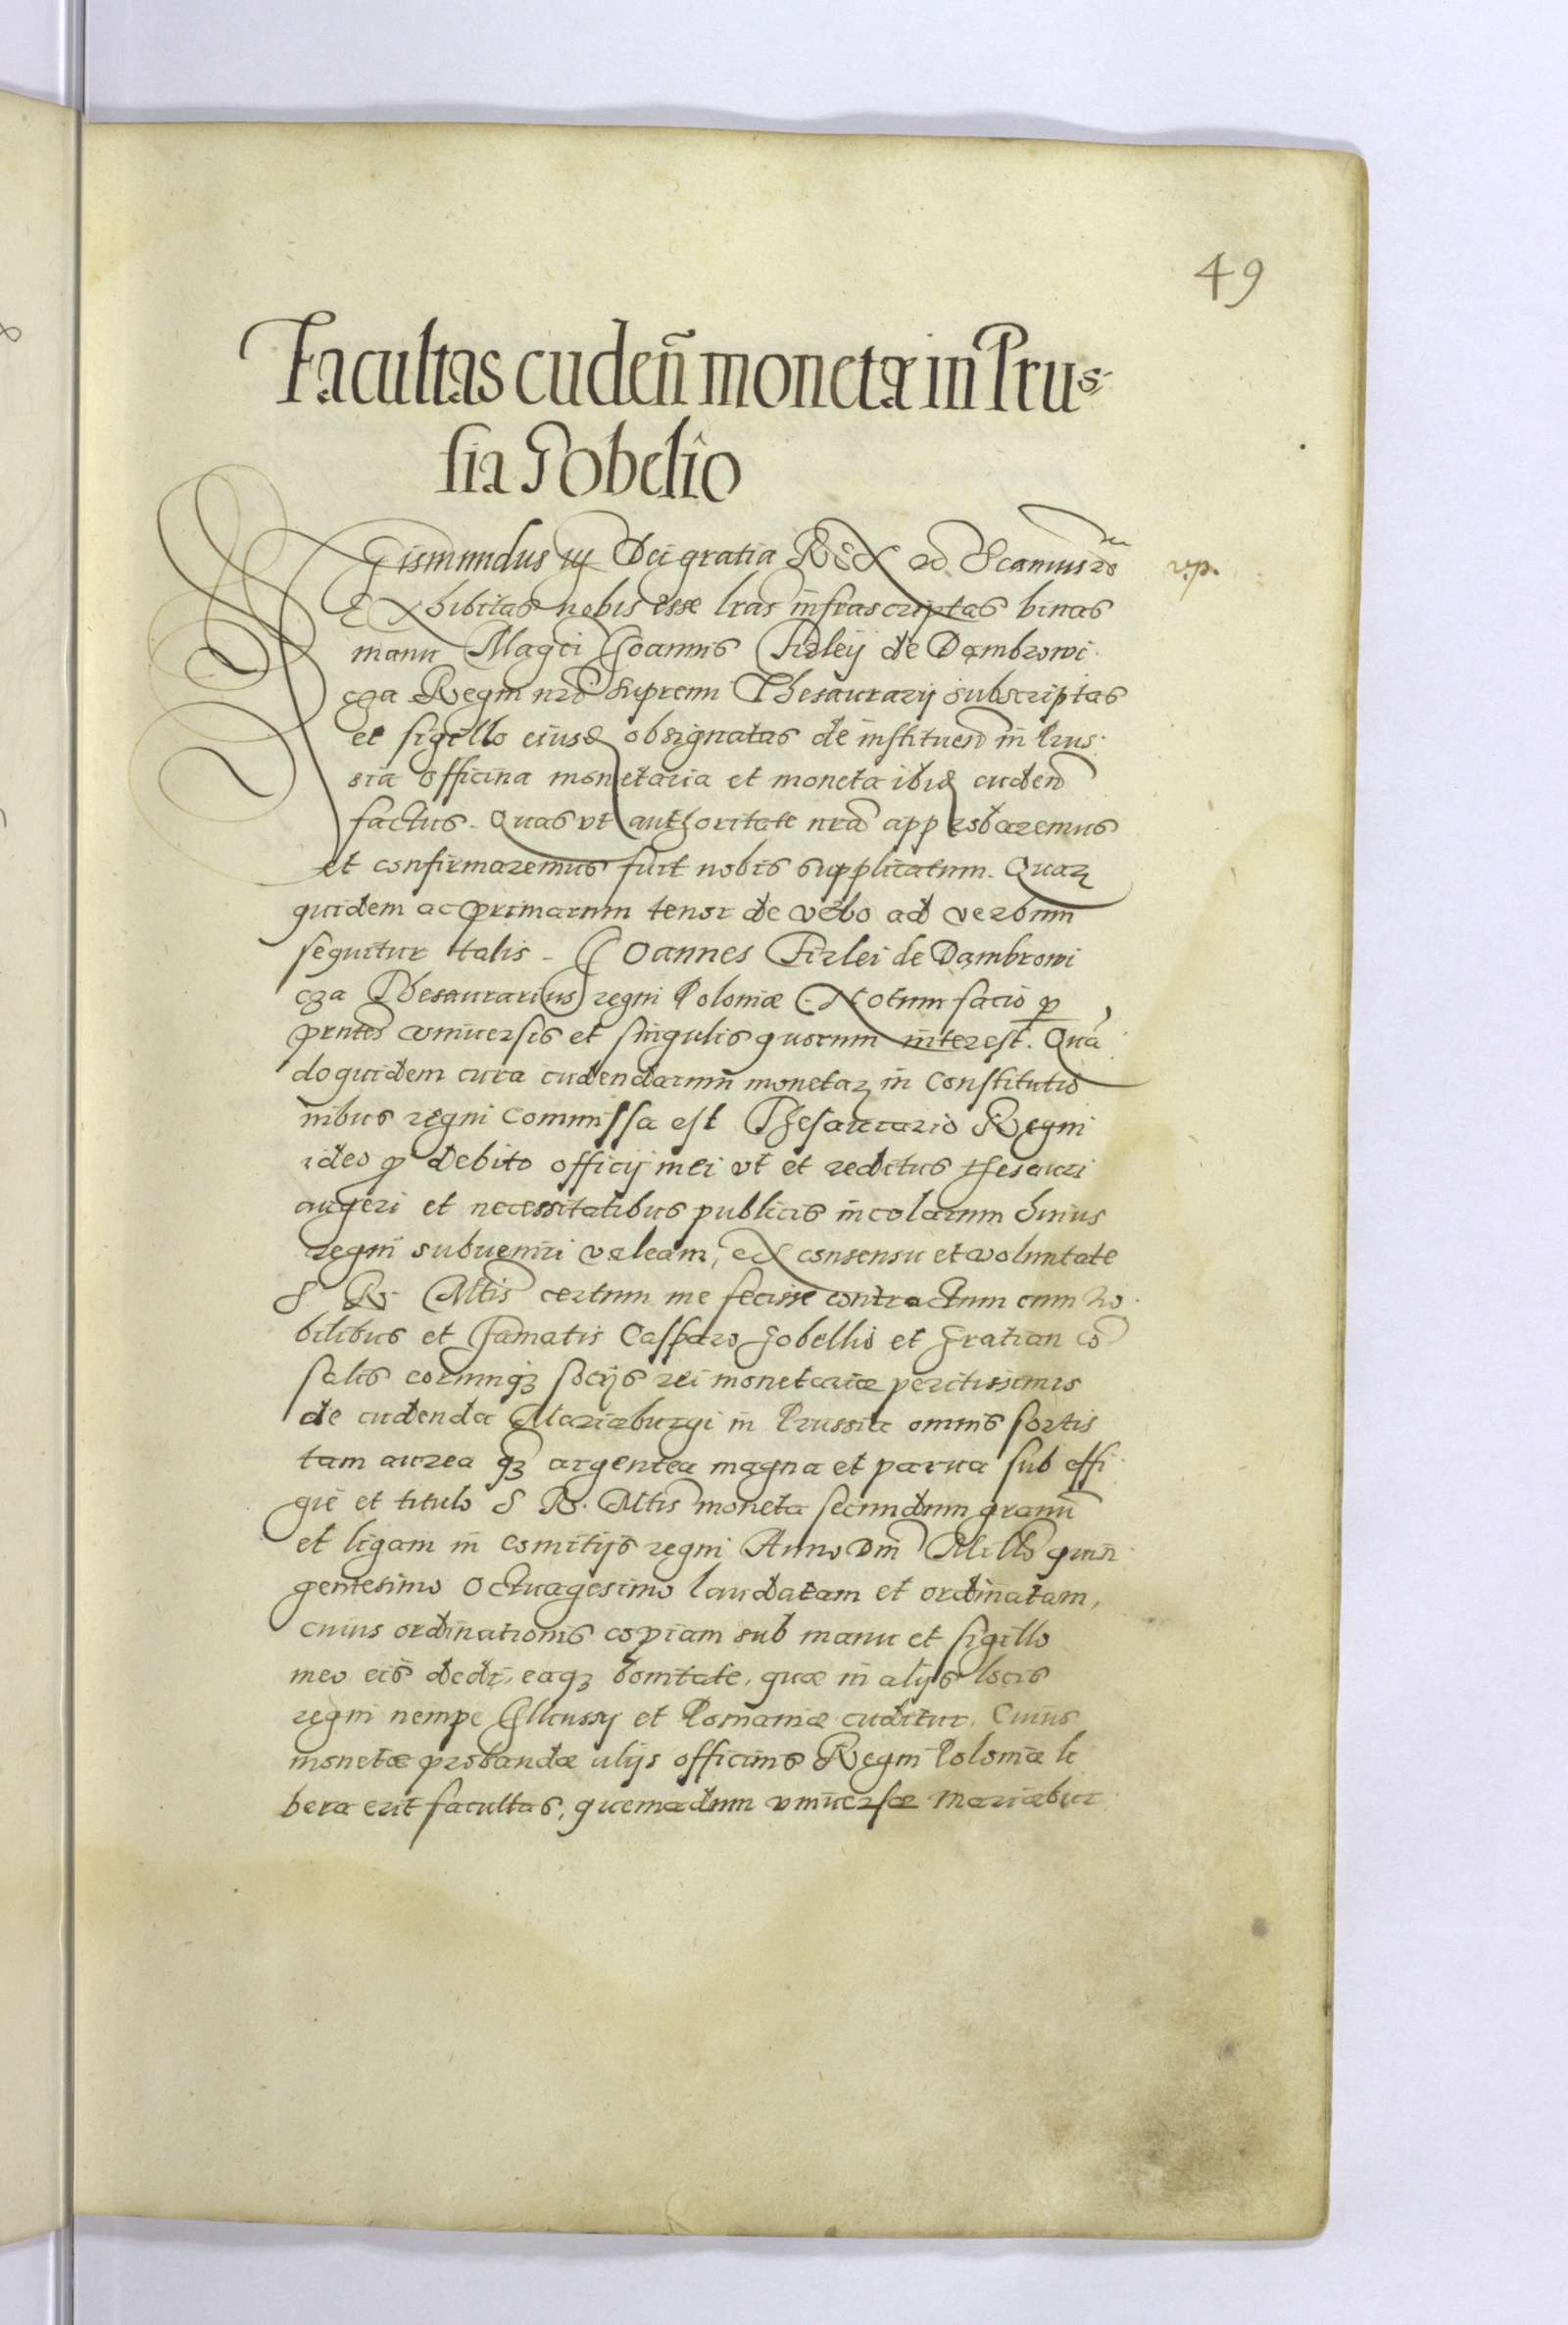 49
Facultas cudeñ monetæ in Prus-
sia Gobelio
Sigismundus iij Dei gratia Rex etc. Scimus
rp.
Exhibitas nobis esse lras infrascriptas binas
manu Magci Joannis Firleij de Dąmbrowi
cza Regni nri Supremi Thesaurarij subscriptas
et sigillo eiusd obsignatas de instituend in Prus
sia officina monetaria et moneta ibid cudend
factus. Quas vt authoritate nra approbaremus
et confirmaremus fuit nobis supplicatum. Quar
quidem ac primarum tenor de verbo ad verbum
sequitur talis. Joannes Firlei de Dąmbrowi
cza Thesaurarius regni Poloniæ Notum facio p
pntes vniuersis et singulis quorum interest. Quã
doquidem cura cudendarum monetar in Constitutio
nibus regni commissa est Thesaurario Regni
ideo p debito officij mei vt et reditus thesauri
augeri et necessitatibus publicis incolarum huius
regni subuenire valeam, ex consensu et voluntate
S R. Mtis certum me fecisse contractum cum No
bilibus et Famatis Casparo Gobellio et Gratian Co
salis eorumq3 socijs rei monetariæ peritissimis
de cudenda Mariæburgi in Prussia omnis sortis
tam aurea q3 argentea magna et parua sub effi
gie et titulo S R. Mtis moneta secundum granũ
et ligam in comitijs regni Anno Dni Millo quin
gentesimo Octuagesimo laudatam et ordinatam,
cuius ordinationis copiam sub manu et sigillo
meo eis dedi, eaq3 bonitate, quæ in alijs locis
regni nempe Ilkussij et Posnaniæ cuditur. Cuius
monetæ probandæ alijs officinis Regni Poloniæ li
bera erit facultas, quemadmodum vniuersæ Mariæbur